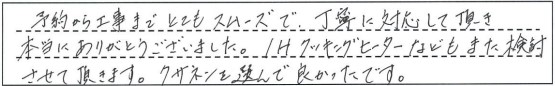 予約から工事までとてもスムーズで、丁寧に対応して頂き
本当にありがとうございました。IHクッキングヒーターなどもまた検討
させて頂きます。クサネンを選んで良かったです。